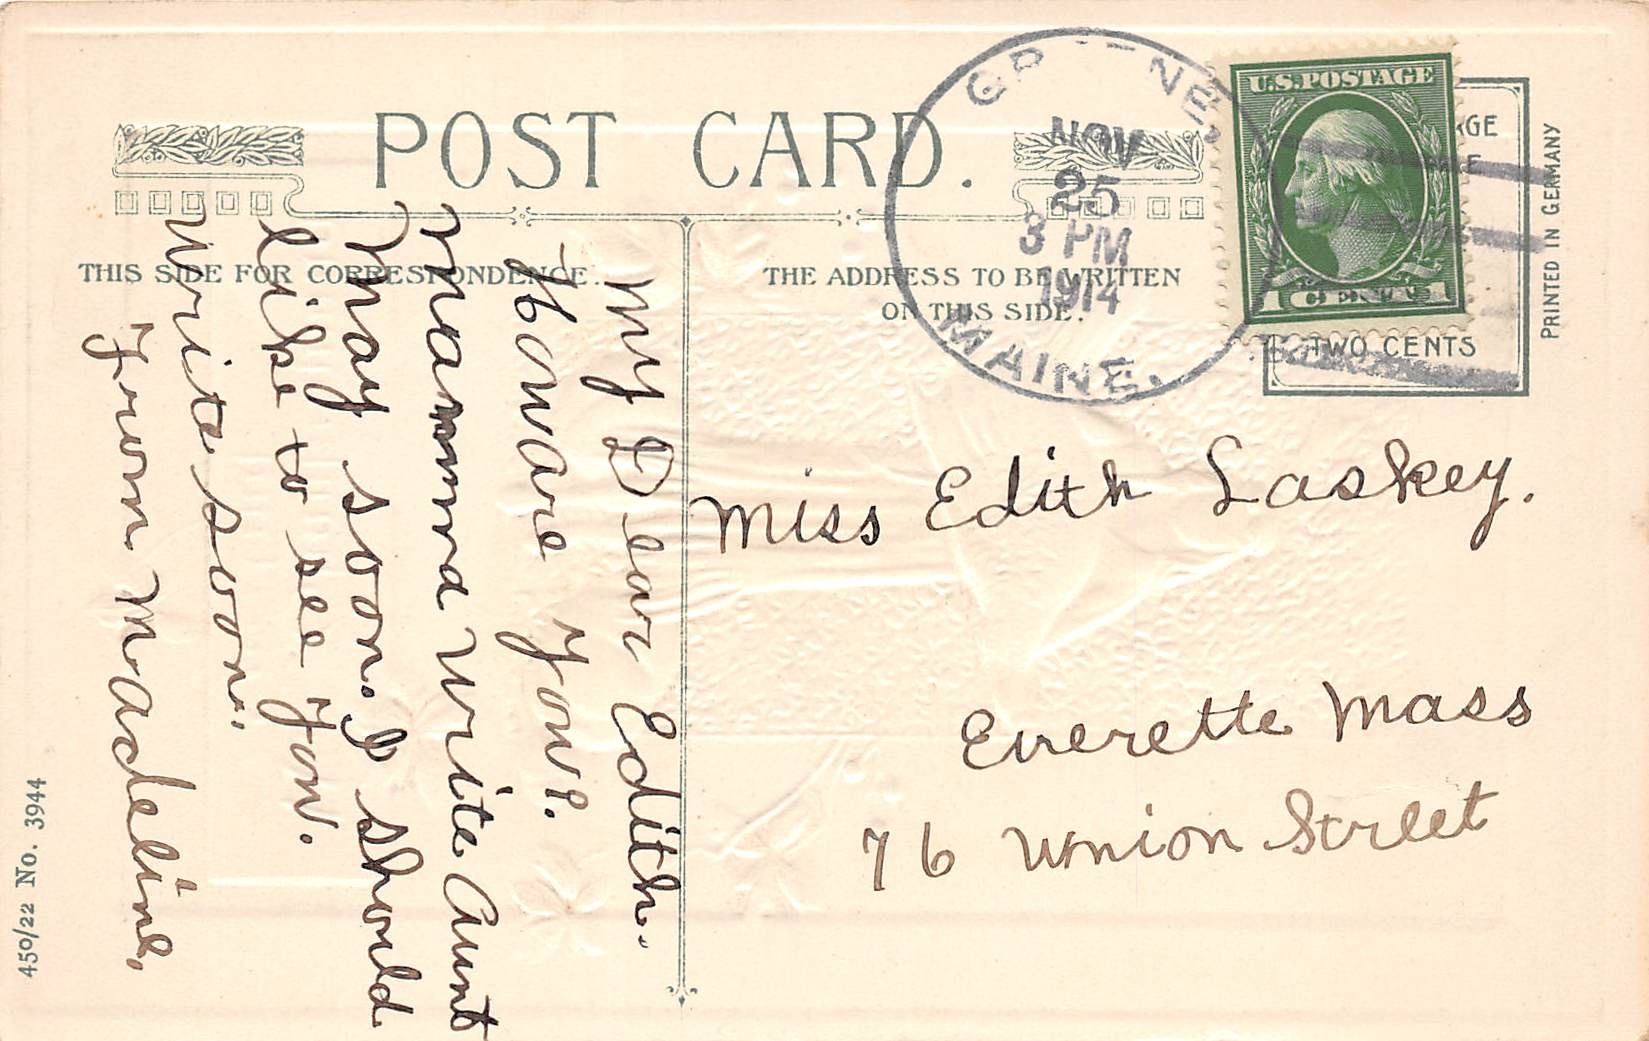 POST CARD.
THIS SIDE FOR CORRESPONDENCE.
THE ADDRESS TO BE WRITTEN
ON THIS SIDE.
NOV
25
3 PM
1914
MAINE.
U.S. POSTAGE
1 CENT 1
TWO CENTS
PRINTED IN GERMANY
450/22 No. 3944
My Dear Edith.
How are you?.
mamma write Aunt
may soon. I should
like to see you.
write soon.
From Madeline.
Miss Edith Laskey.
Everette Mass
76 Union Street